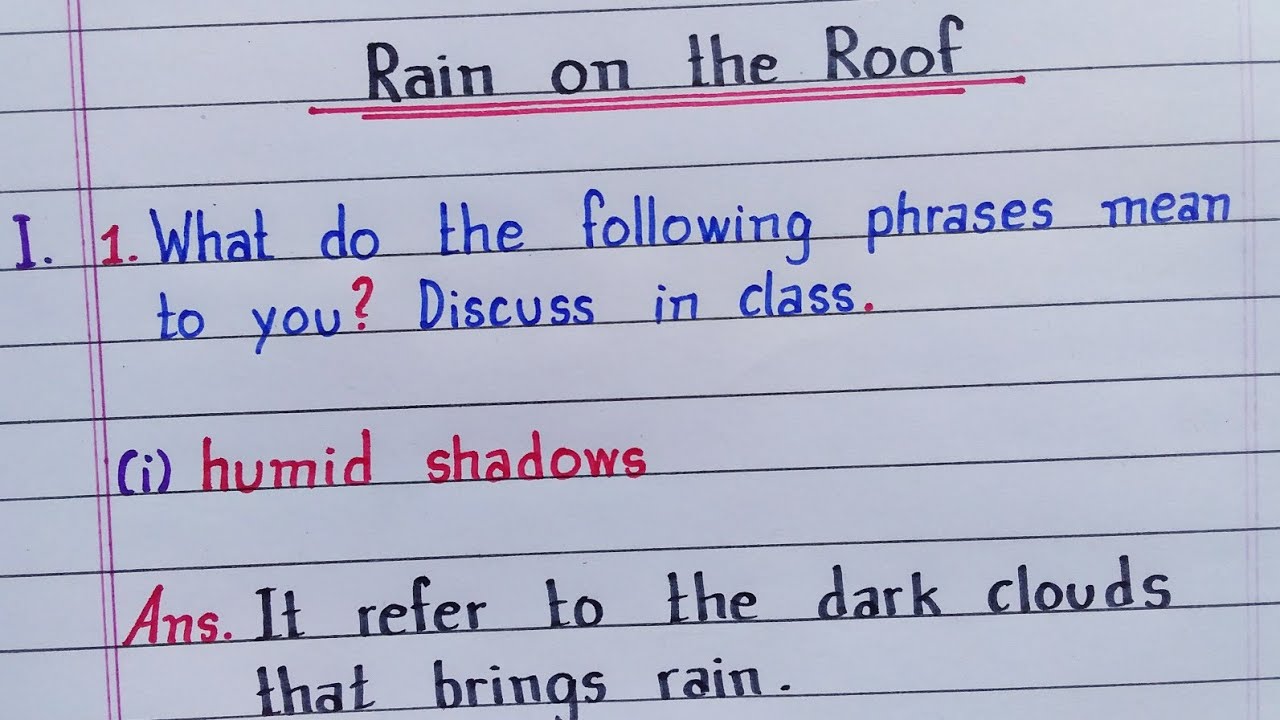 Rain on the Roof
I. 1. What do the following phrases mean
to you? Discuss in class.
(i) humid shadows
Ans. It refer to the dark clouds
that brings rain.